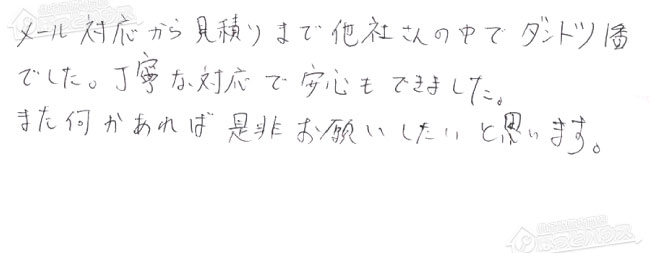 メール対応から見積りまで他社さんの中でダントツ1番
でした。丁寧な対応で安心もできました。
また何かあれば是非お願いしたいと思います。